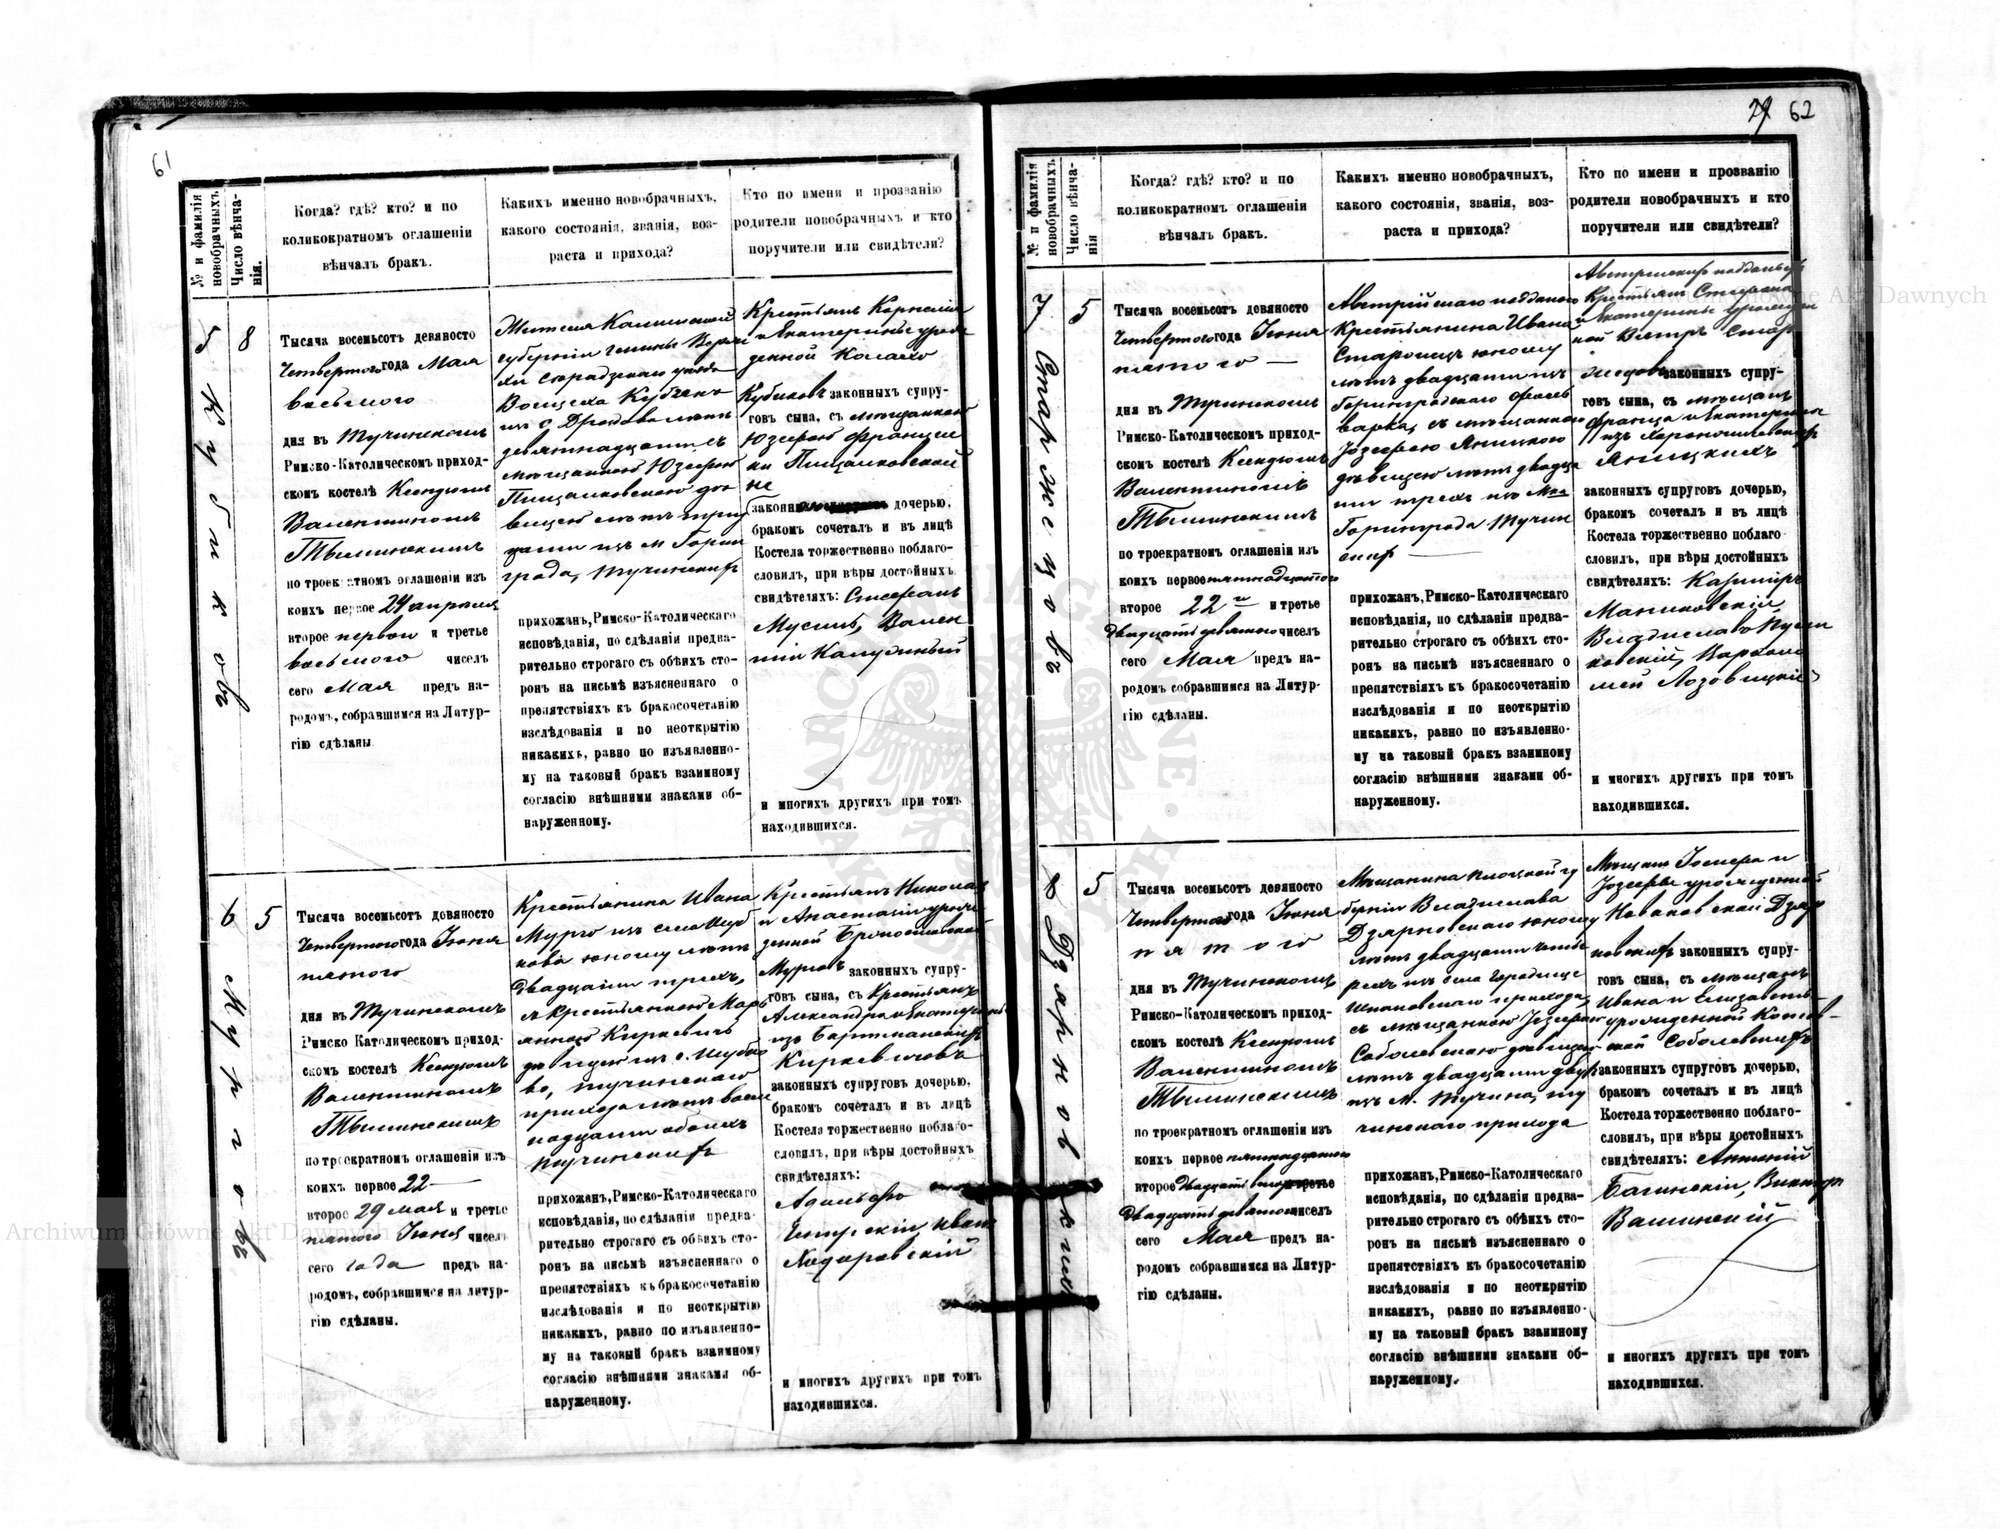 61
№ и фамилія новобрачныхъ.
Число вѣнча-
нія.
Когда? гдѣ? кто? и по
коликократномъ оглашеніи
вѣнчалъ бракъ.
Какихъ именно новобрачныхъ,
какого состоянія, званія, воз-
раста и прихода?
Кто по имени и прозванію
родители новобрачныхъ и кто
поручители или свидѣтели?
5
Кубиковъ
8
Тысяча восемьсотъ девяносто
Четвертого года Мая
восьмого
дня въ Тучинскомъ
Римско-Католическомъ приход-
скомъ костелѣ Ксендзомъ
Валентиномъ
Тыминскимъ
по троекратномъ оглашеніи изъ
коихъ первое 24 апреля
второе первой и третье
восьмого чиселъ
сего Мая предъ на-
родомъ, собравшимся на Литур-
гію сдѣланы
Жителя
губерніи гмины
девятнадцати съ
мѣщанкою Юзефою
прихожанъ, Римско-Католическаго
исповѣданія, по сдѣланіи предва-
рительно строгаго съ обѣихъ сто-
ронъ на письмѣ изъясненнаго о
препятствіяхъ къ бракосочетанію
изслѣдованія и по неоткрытію
никакихъ, равно по изъявленно-
му на таковый бракъ взаимному
согласію внѣшними знаками об-
наруженному.
Крестьянъ Корнелія
и Екатерины урож
денной
Кубиковъ законныхъ супру-
говъ сына, съ мѣщанкою
Юзефою Франциш
ки
не
законн дочерью,
бракомъ сочеталъ и въ лицѣ
Костела торжественно поблаго-
словилъ, при вѣры достойныхъ
свидѣтеляхъ: Стефанъ
Мусилъ, Вален
тій
и многихъ другихъ при томъ
находившихся.
6
Мурговъ
5
Тысяча восемьсотъ девяносто
Четвертого года Іюня
пятого
дня въ Тучинскомъ
Римско Католическомъ приход-
скомъ костелѣ Ксендзомъ
Валентиномъ
Тыминскимъ
по троекратномъ оглашеніи изъ
коихъ первое 22
второе 29 мая и третье
пятого Іюня чиселъ
сего года предъ на-
родомъ, собравшимся на литур-
гію сдѣланы.
Крестьянина Ивана
Мурго изъ села Шуб
кова юношу лѣтъ
двадцати трехъ,
съ Крестьянкою Марь
янною Киркевичъ
дѣвицею изъ с. Шубко
во, тучинскаго
прихода лѣтъ восем
надцати обоихъ
тучинскихъ
прихожанъ, Римско-Католическаго
исповѣданія, по сдѣланіи предва-
рительно строгаго съ обѣихъ сто-
ронъ на письмѣ изъясненнаго о
препятствіяхъ къ бракосочетанію
изслѣдованія и по неоткрытію
никакихъ, равно по изъявленно-
му на таковый бракъ взаимному
согласію внѣшними знаками об-
наруженному.
Крестьянъ Николая
и Анастасіи урож
денной
Мурговъ законныхъ супру-
говъ сына, съ Крестьянъ
Александра и Екатерины
изъ
Киркевичовъ
законныхъ супруговъ дочерью,
бракомъ сочеталъ и въ лицѣ
Костела торжественно поблаго-
словилъ, при вѣры достойныхъ
свидѣтеляхъ:
Адольфъ
Иванъ
Ходоровскій
и многихъ другихъ при томъ
находившихся.
29 62
№ и фамилія новобрачныхъ.
Число вѣнча-
нія
Когда? гдѣ? кто? и по
коликократномъ оглашеніи
вѣнчалъ бракъ.
Какихъ именно новобрачныхъ,
какого состоянія, званія, воз-
раста и прихода?
Кто по имени и прозванію
родители новобрачныхъ и кто
поручители или свидѣтели?
7
5
Тысяча восемьсотъ девяносто
Четвертого года Іюня
пятого
дня въ Тучинскомъ
Римско-Католическомъ приход-
скомъ костелѣ Ксендзомъ
Валентиномъ
Тыминскимъ
по троекратномъ оглашеніи изъ
коихъ первое пятнадцатого
второе 22 и третье
двадцать девятого чиселъ
сего Мая предъ на-
родомъ собравшимся на Литур-
гію сдѣланы.
Австрійскаго подданого
Крестьянина Ивана
юношу
лѣтъ двадцати
Горинградского фоль
варка, съ мѣщанкою
Іозефою Яницкою
дѣвицею лѣтъ двадца
ти трехъ изъ м.
Горинграда Тучин
скихъ
прихожанъ, Римско-Католическаго
исповѣданія, по сдѣланіи предва-
рительно строгаго съ обѣихъ сто-
ронъ на письмѣ изъясненнаго о
препятствіяхъ къ бракосочетанію
изслѣдованія и по неоткрытію
никакихъ, равно по изъявленно-
му на таковый бракъ взаимному
согласію внѣшними знаками об-
наруженному.
Австрійскихъ подданныхъ
Крестьянъ Стефана
и Екатерины урожден
ной
законныхъ супру-
говъ сына, съ мѣщанъ
Франца и Екатерины
Яницкихъ
законныхъ супруговъ дочерью,
бракомъ сочеталъ и въ лицѣ
Костела торжественно поблаго
словилъ, при вѣры достойныхъ
свидѣтеляхъ: Казимиръ
Маликовскій,
Владиславъ
ковскій, Варѳоло
мей Лозовицкій
и многихъ другихъ при томъ
находившихся.
8
5
Тысяча восемьсотъ девяносто
Четвертого года Іюня
пятого
дня въ Тучинскомъ
Римско-Католическомъ приход-
скомъ костелѣ Ксендзомъ
Валентиномъ
Тыминскимъ
по троекратномъ оглашеніи изъ
коихъ первое пятнадцатого
второе двадцать второго третье
двадцать девятого чиселъ
сего Мая предъ на-
родомъ собравшимся на Литур-
гію сдѣланы.
Мѣщанина плоцкой гу
берніи Владислава
Дзярновскаго юношу
лѣтъ двадцати четы
рехъ изъ села Городище
прихода,
съ мѣщанкою Іозефою
Соболевскою дѣвицею
лѣтъ двадцати двухъ
изъ м. Тучина, ту
чинскаго прихода
прихожанъ, Римско-Католическаго
исповѣданія, по сдѣланіи предва-
рительно строгаго съ обѣихъ сто-
ронъ на письмѣ изъясненнаго о
препятствіяхъ къ бракосочетанію
изслѣдованія и по неоткрытію
никакихъ, равно по изъявленно-
му на таковый бракъ взаимному
согласію внѣшними знаками об-
наруженному.
Мѣщанъ Іосифа и
Іозефы урожденной
Новаковской Дзяр
новскихъ законныхъ супру-
говъ сына, съ мѣщанъ
Ивана и Елизаветы
урожденной
Соболевскихъ
законныхъ супруговъ дочерью,
бракомъ сочеталъ и въ лицѣ
Костела торжественно поблаго-
словилъ, при вѣры достойныхъ
свидѣтеляхъ: Антоній
Багинскій, Викторъ
Валинскій
и многихъ другихъ при томъ
находившихся.
Archiwum Główne Akt Dawnych
Archiwum Główne Akt Dawnych
ARCHIWUM GŁÓWNE AKT DAWNYCH